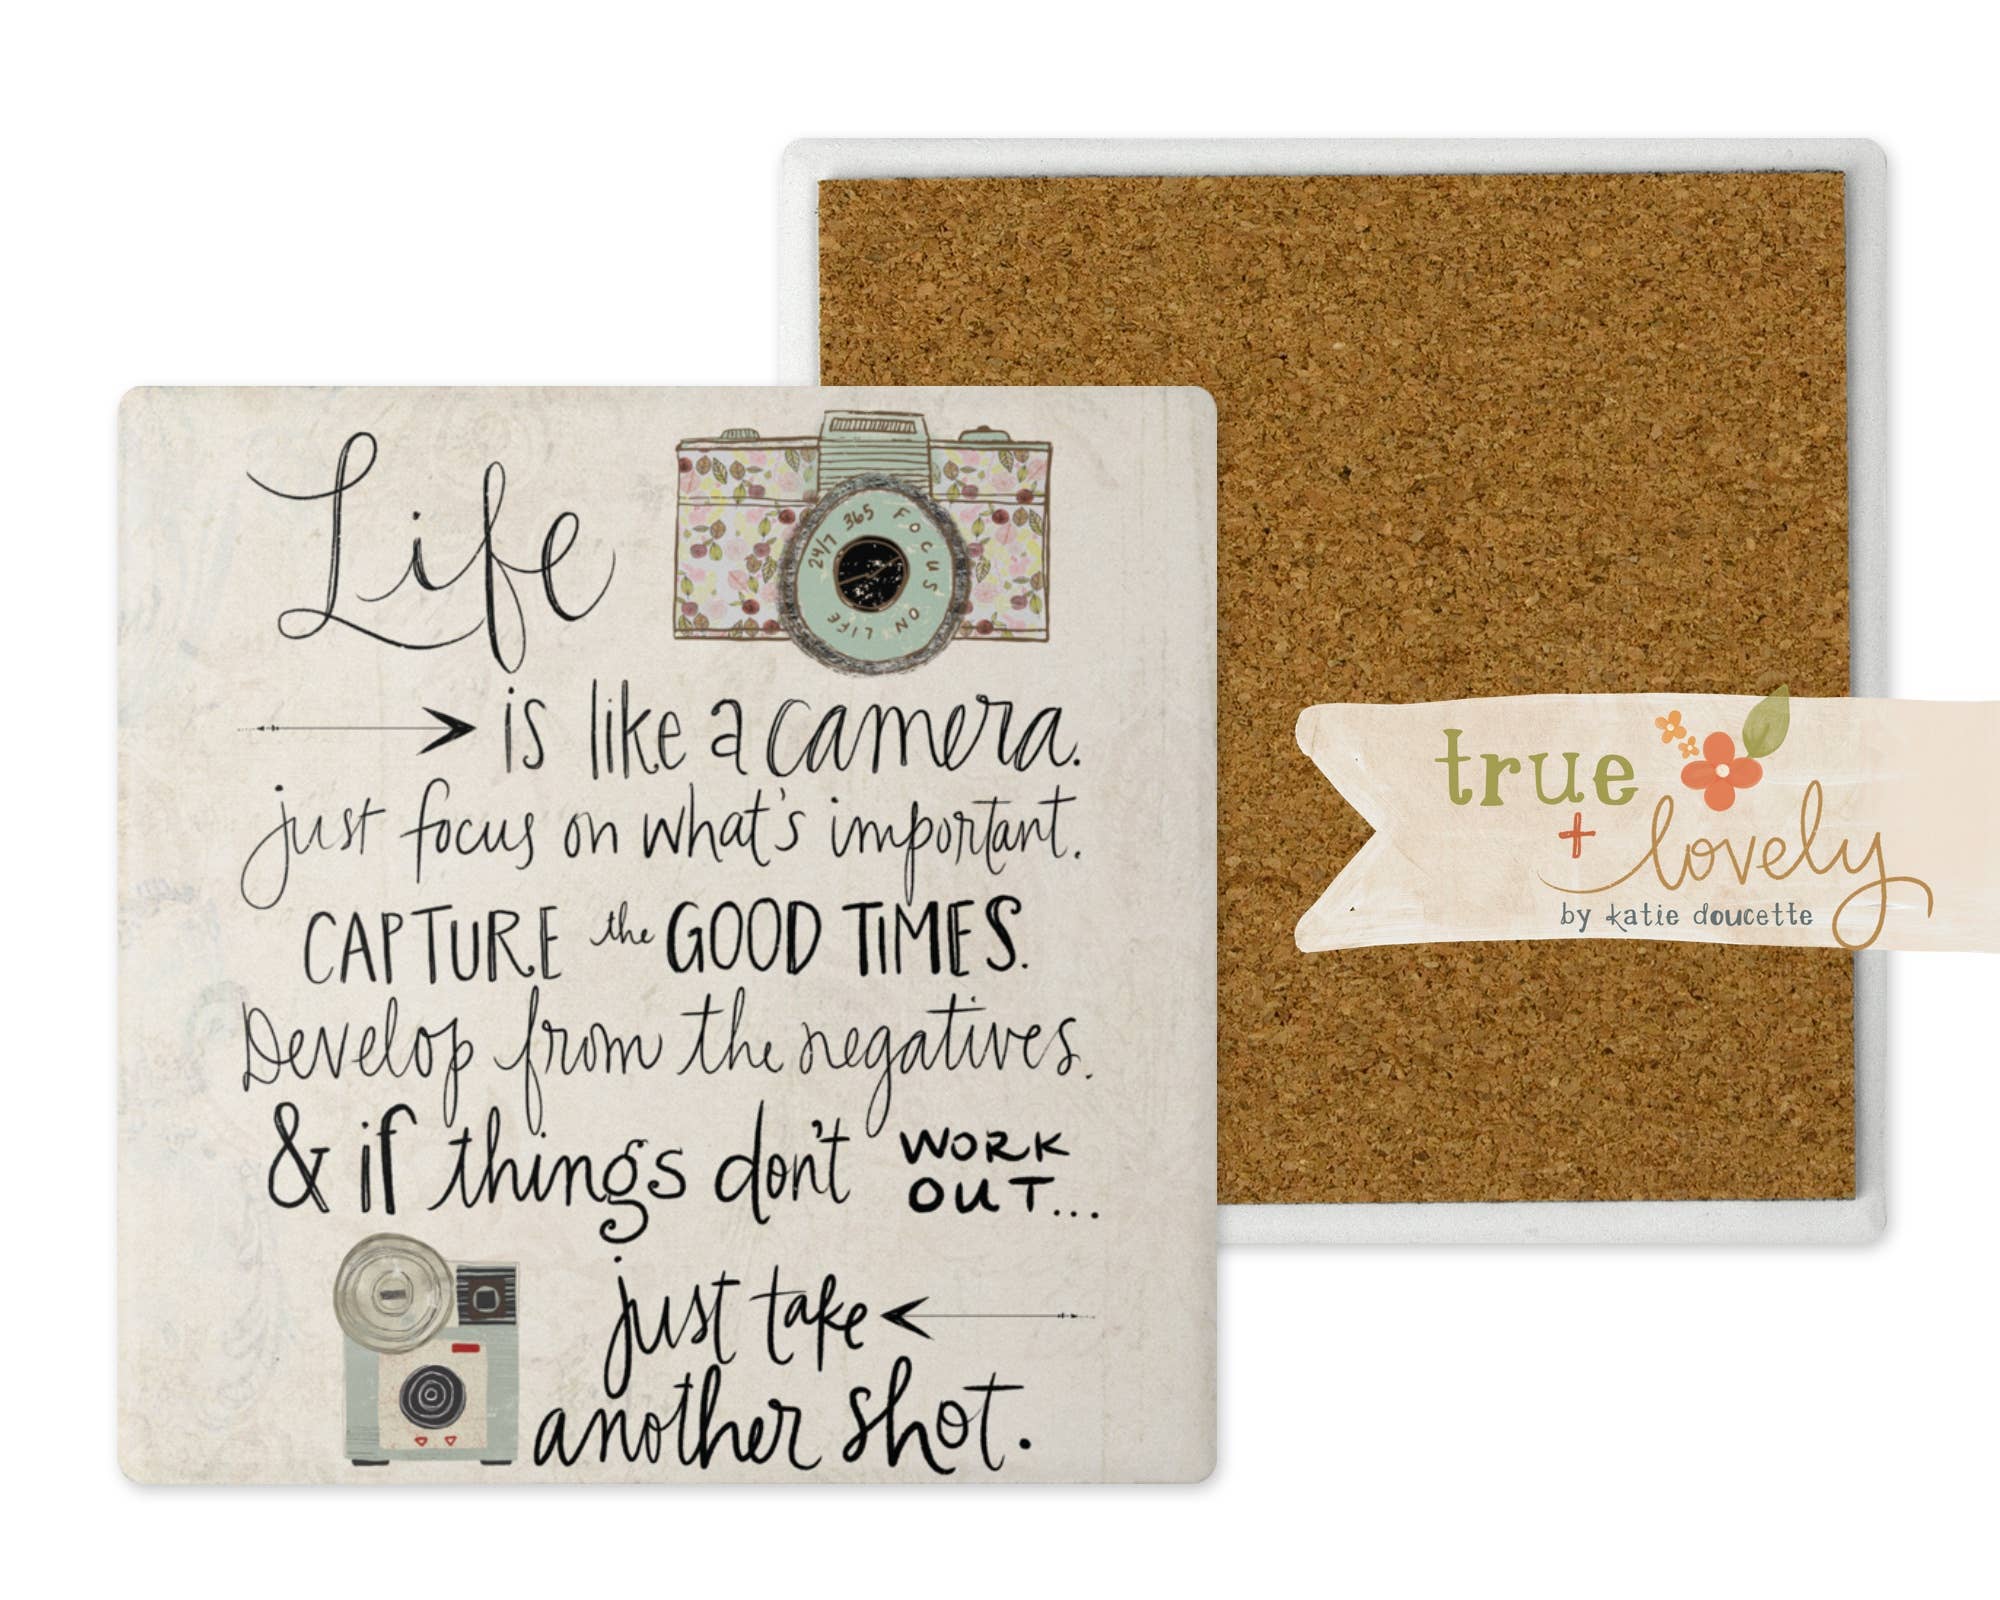 Life
365 FOCUS ON LIFE 24/7
is like a camera.
just focus on what's important.
CAPTURE the GOOD TIMES.
Develop from the negatives.
& if things don't WORK
OUT...
just take
another shot.
true
+ lovely
by katie doucette